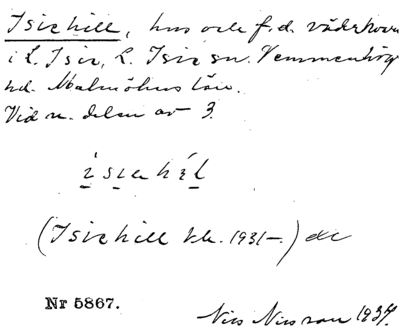 Isie hill, hus och f.d. väderkvarn
i L. Isie, L. Isie sn. Vemmenhögs
hd. Malmöhus län.
Vid n. delen av 3.
(Isie hill kb. 1931—) dc
Nr 5867.
Nils Nilsson 1937.